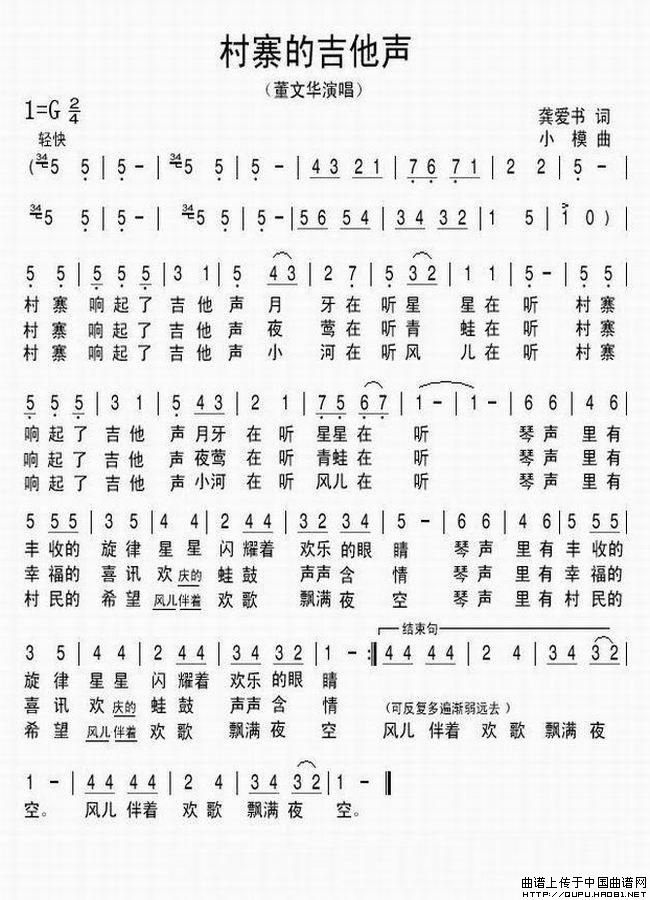 村寨的吉他声
（董文华演唱）
1=G 2/4
龚爱书 词
轻快
小 模 曲
( 34 5 5 | 5 - | 34 5 5 | 5 - | 43 21 | 76 71 | 2 2 | 5 - |
34 5 5 | 5 - | 34 5 5 | 5 - | 56 54 | 34 32 | 1 5 | 1 0 ) |
5 5 | 5 5 5 | 3 1 | 5 43 | 2 7 | 5 32 | 1 1 | 5 - | 5 5 |
村 寨 响 起 了 吉 他 声 月 牙 在 听 星 星 在 听 村 寨
村 寨 响 起 了 吉 他 声 夜 莺 在 听 青 蛙 在 听 村 寨
村 寨 响 起 了 吉 他 声 小 河 在 听 风 儿 在 听 村 寨
5 5 5 | 3 1 | 5 43 | 2 1 | 75 67 | 1 - | 1 - | 6 6 | 4 6 |
响 起 了 吉 他 声 月 牙 在 听 星 星 在 听 琴 声 里 有
响 起 了 吉 他 声 夜 莺 在 听 青 蛙 在 听 琴 声 里 有
响 起 了 吉 他 声 小 河 在 听 风 儿 在 听 琴 声 里 有
5 55 | 3 5 | 4 4 | 2 44 | 32 34 | 5 - | 6 6 | 4 6 | 5 55 |
丰 收的 旋 律 星 星 闪 耀着 欢乐 的眼 睛 琴 声 里 有 丰 收的
幸 福的 喜 讯 欢 庆的 蛙 鼓 声声 含 情 琴 声 里 有 幸 福的
村 民的 希 望 风儿 伴着 欢 歌 飘满 夜 空 琴 声 里 有 村 民的
结束句
3 5 | 4 4 | 2 44 | 34 32 | 1 - :| 44 44 | 2 4 | 34 32 |
旋 律 星 星 闪 耀着 欢乐 的眼 睛
喜 讯 欢 庆的 蛙 鼓 声声 含 情 （可反复多遍渐弱远去）
希 望 风儿 伴着 欢 歌 飘满 夜 空 风儿 伴着 欢 歌 飘满 夜
1 - | 44 44 | 2 4 | 34 32 | 1 - ‖
空。 风儿 伴着 欢 歌 飘满 夜 空。
曲谱上传于中国曲谱网
HTTP://QUPU.HAO81.NET